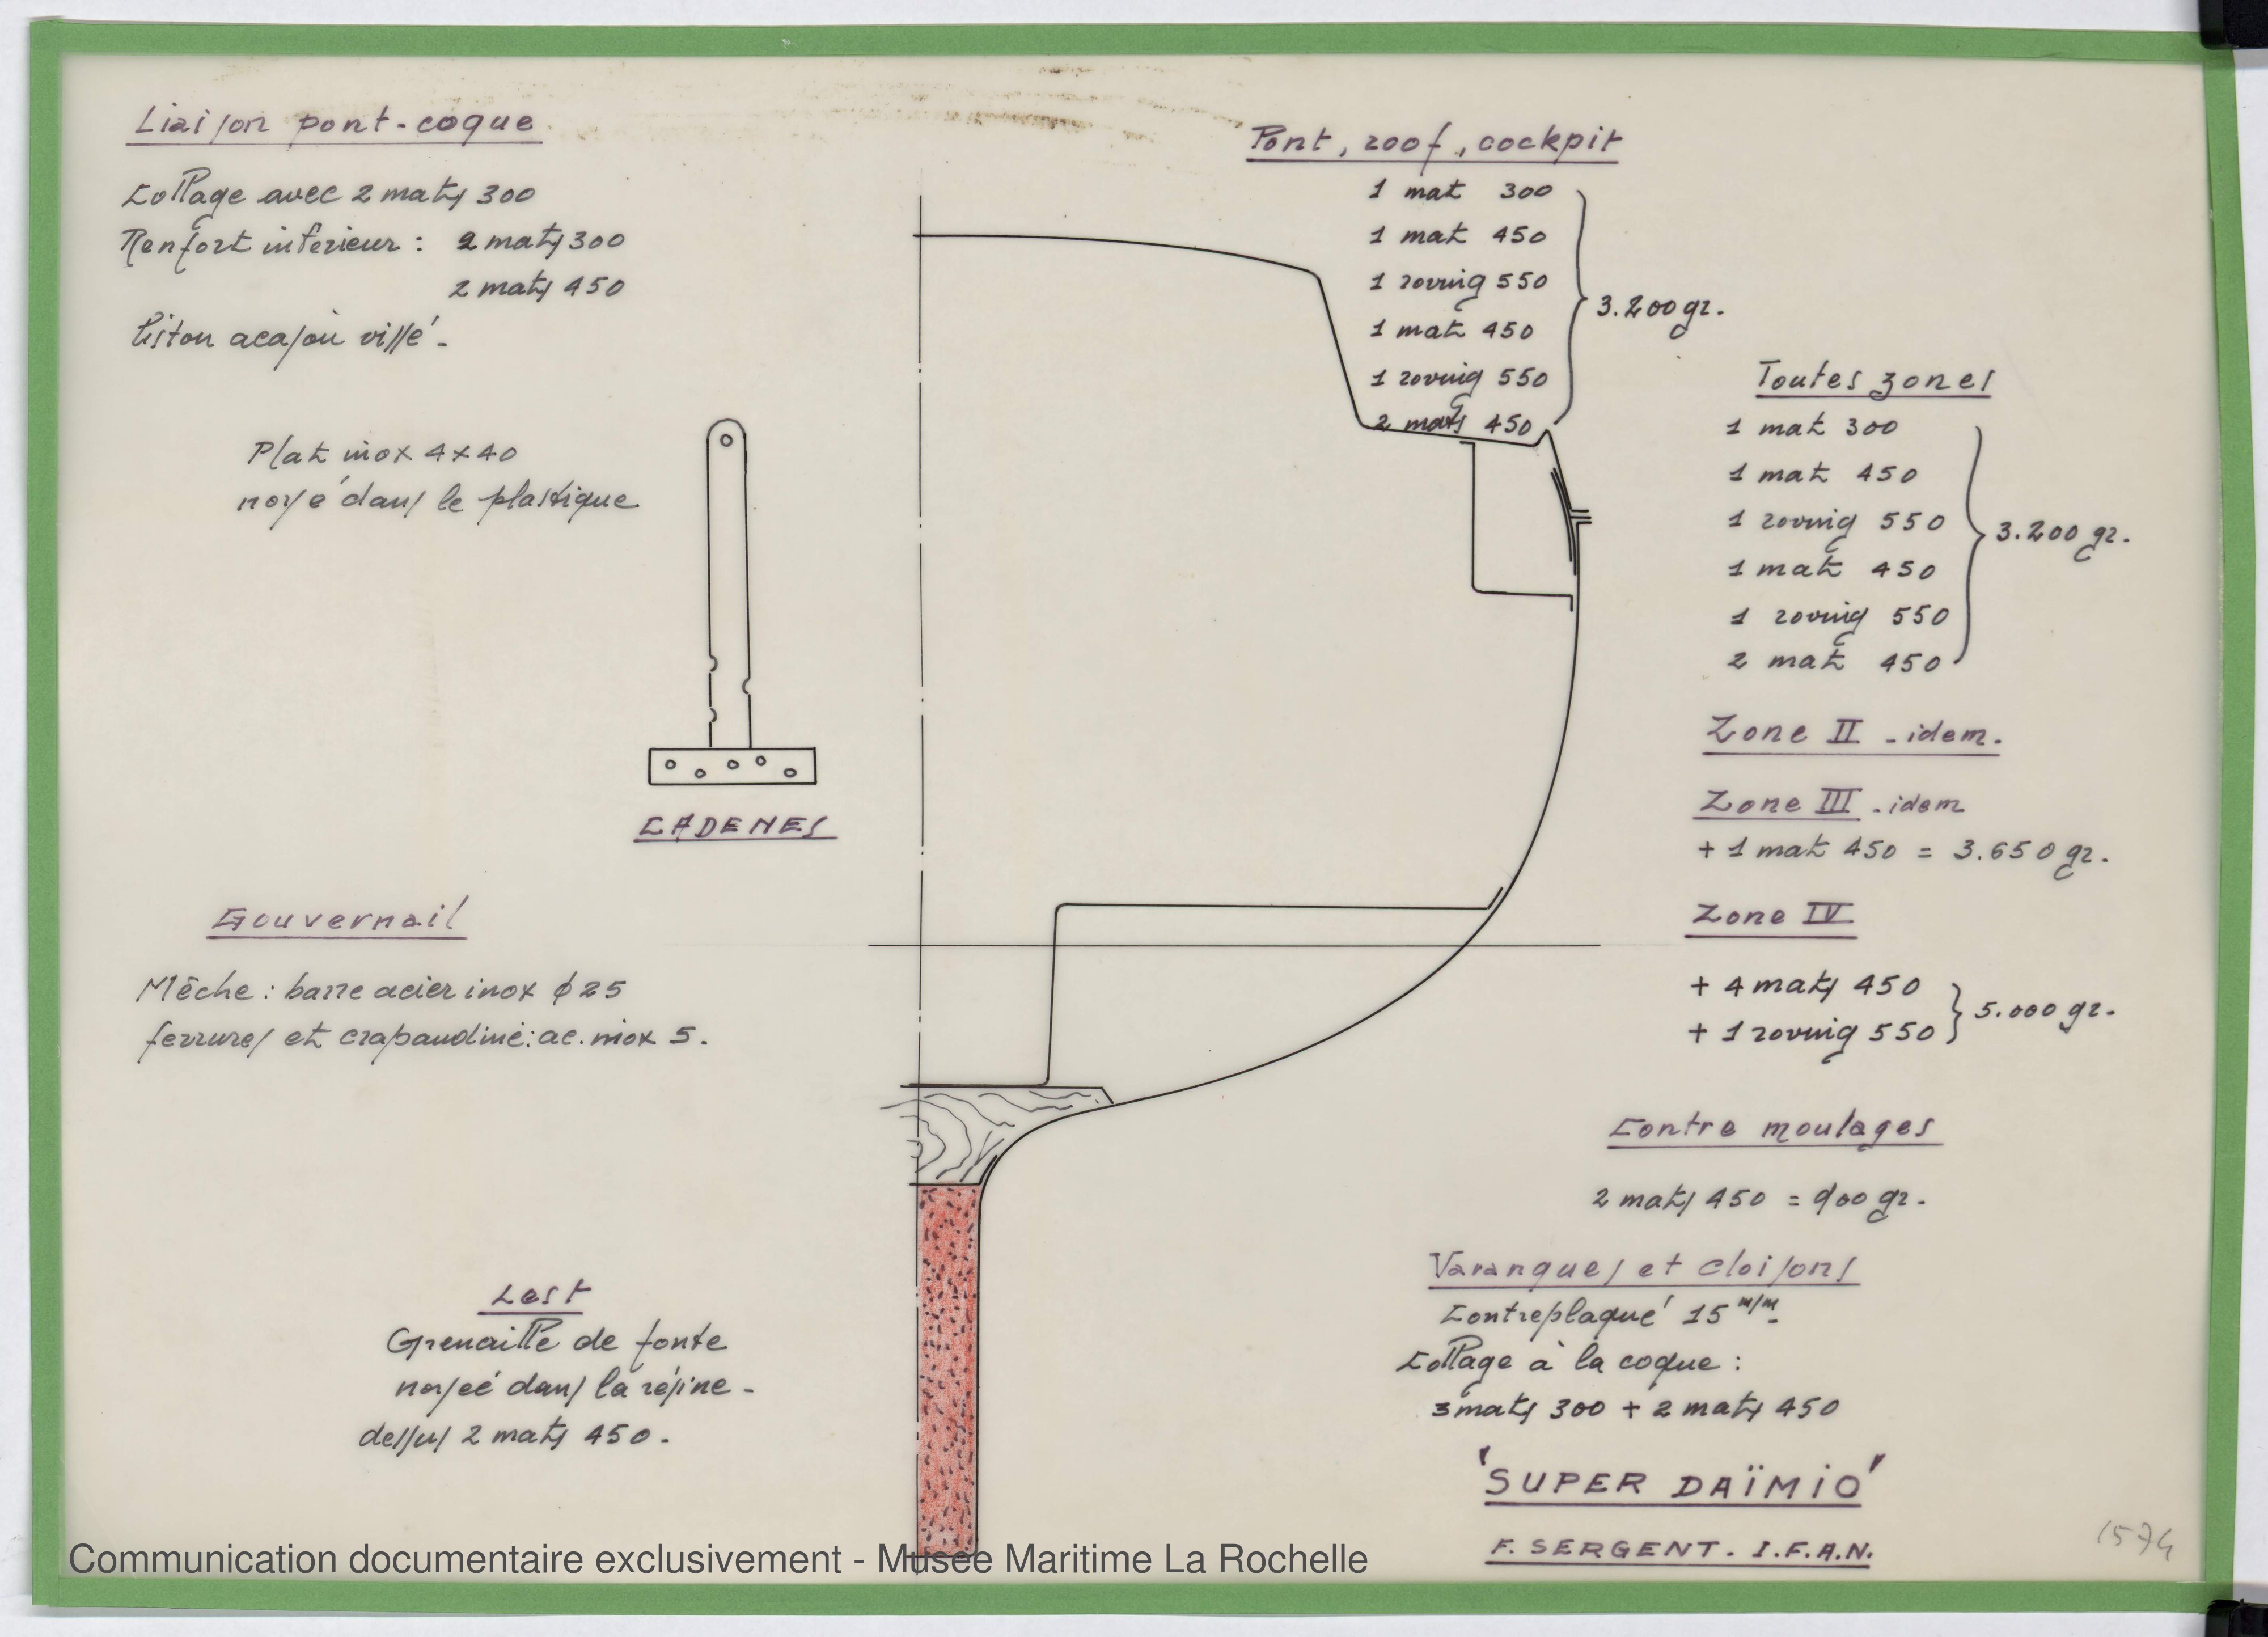 Liaison pont-coque
Collage avec 2 mats 300
Renfort intérieur : 2 mats 300
2 mats 450
liston acajou vissé -
Plat inox 4x40
noyé dans le plastique
CADENES
Gouvernail
Mêche : barre acier inox ϕ 25
ferrures et crapaudine: ac. inox 5.
Lest
Grenaille de fonte
noyeé dans la résine -
dessus 2 mats 450.
Pont, roof, cockpit
1 mat 300
1 mat 450
1 roving 550
1 mat 450
1 roving 550
2 mats 450
3.200 gr.
Toutes zones
1 mat 300
1 mat 450
1 roving 550
1 mat 450
1 roving 550
2 mat 450
3.200 gr.
Zone II - idem.
Zone III - idem
+ 1 mat 450 = 3.650 gr.
Zone IV
+ 4 mats 450
+ 1 roving 550
5.000 gr.
Contre moulages
2 mats 450 = 900 gr.
Varangues et cloisons
Contreplaqué 15 m/m -
Collage à la coque :
3 mats 300 + 2 mats 450
'SUPER DAÏMIO'
F. SERGENT. I.F.A.N.
1574
Communication documentaire exclusivement - Musée Maritime La Rochelle